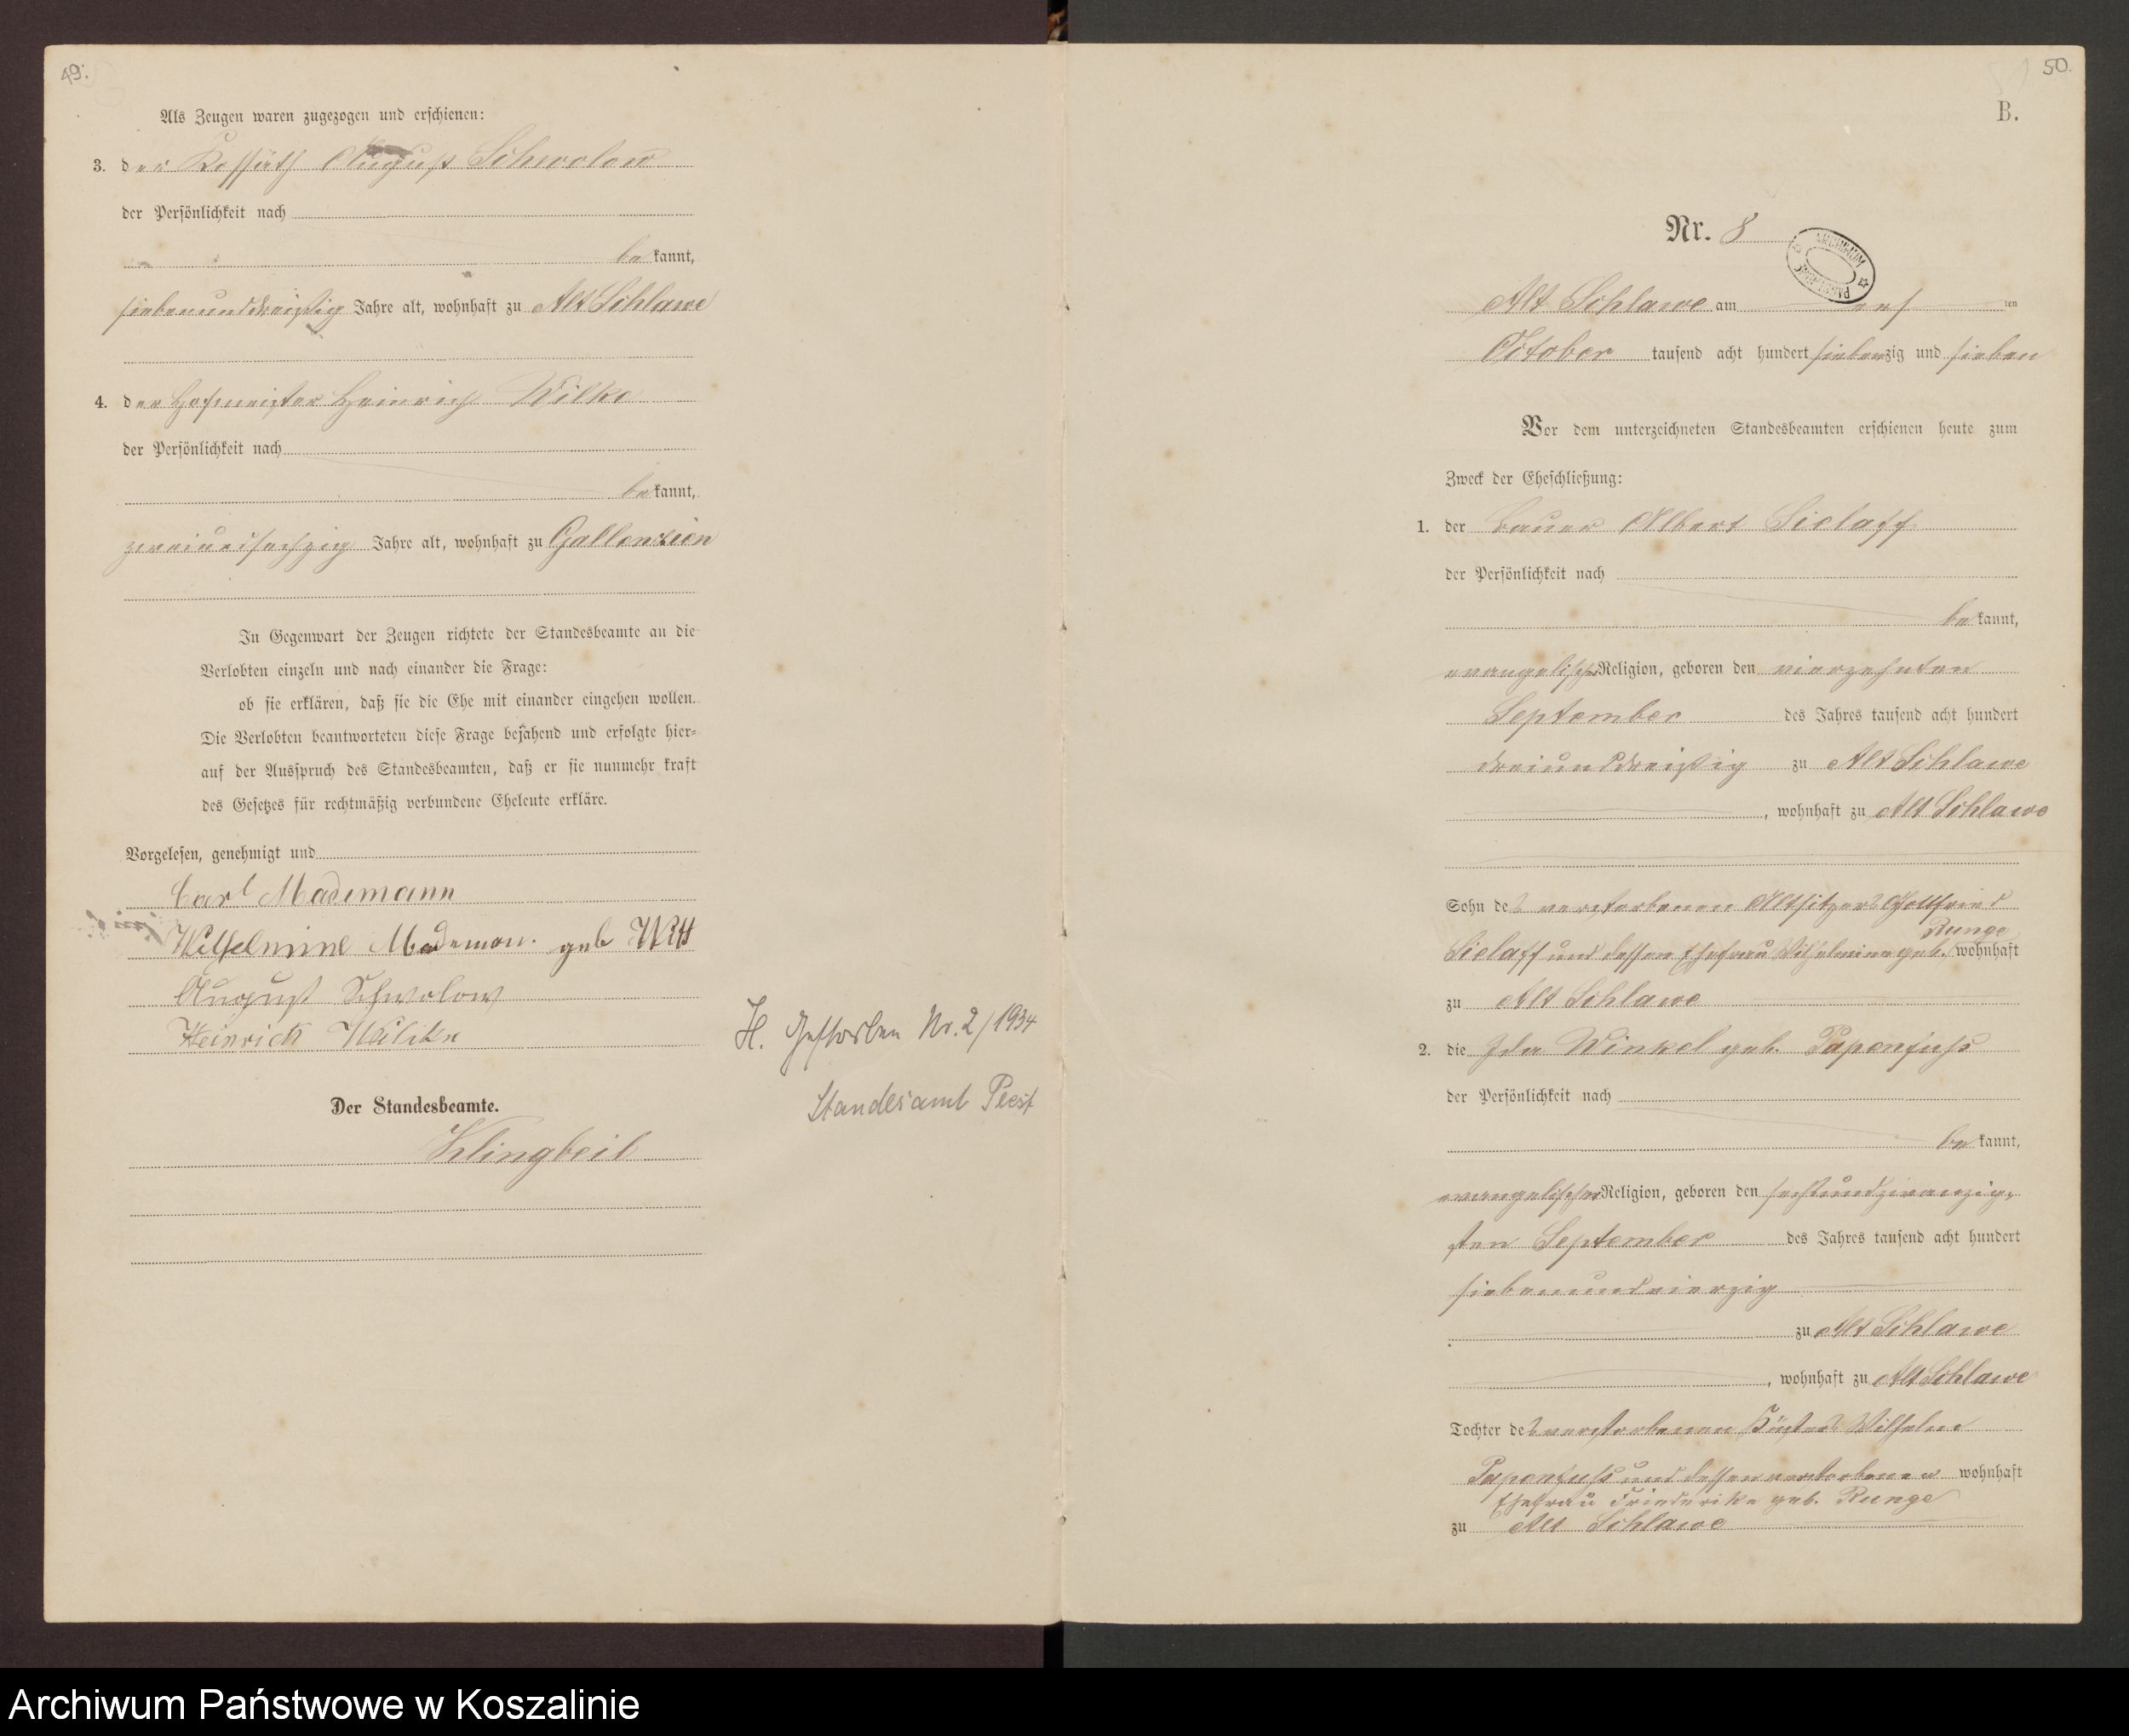 49.
Als Zeugen waren zugezogen und erschienen:
3. der Kossäth August Schwolow
der Persönlichkeit nach
bekannt,
siebenunddreißig Jahre alt, wohnhaft zu Alt Schlawe
4. der Hofmeister Heinrich Wilke
der Persönlichkeit nach
bekannt,
zweiundsechzig Jahre alt, wohnhaft zu Gallenzien
In Gegenwart der Zeugen richtete der Standesbeamte an die
Verlobten einzeln und nach einander die Frage:
ob sie erklären, daß sie die Ehe mit einander eingehen wollen.
Die Verlobten beantworteten diese Frage bejahend und erfolgte hier-
auf der Ausspruch des Standesbeamten, daß er sie nunmehr kraft
des Gesetzes für rechtmäßig verbundene Eheleute erkläre.
Vorgelesen, genehmigt und
Carl Mademann
Wilhelmine Mademan. geb Witt
August Schwolow
Heinrich
Der Standesbeamte.
Klingbeil
H. Gestorben Nr. 2/1934
Standesamt Peest
50.
B.
Nr. 8
ARCHIWUM
Alt Schlawe am ten
October tausend acht hundert siebenzig und sieben
Vor dem unterzeichneten Standesbeamten erschienen heute zum
Zweck der Eheschließung:
1. der Bauer Albert Sielaff
der Persönlichkeit nach
bekannt,
evangelischer Religion, geboren den vierzehnten
September des Jahres tausend acht hundert
dreiunddreißig zu Alt Schlawe
, wohnhaft zu Alt Schlawe
Sohn des verstorbenen Altsitzers Gottfried
Runge
Sielaff und dessen Ehefrau Wilhelmine geb. wohnhaft
zu Alt Schlawe
2. die Ida Winkel geb. Papenfuss
der Persönlichkeit nach
bekannt,
evangelischer Religion, geboren den sechsundzwanzig-
sten September des Jahres tausend acht hundert
siebenundvierzig
zu Alt Schlawe
, wohnhaft zu Alt Schlawe
Tochter des verstorbenen Küsters Wilhelm
Papenfuss und dessen verstorbenen wohnhaft
Ehefrau Friederike geb. Runge
zu Alt Schlawe
Archiwum Państwowe w Koszalinie